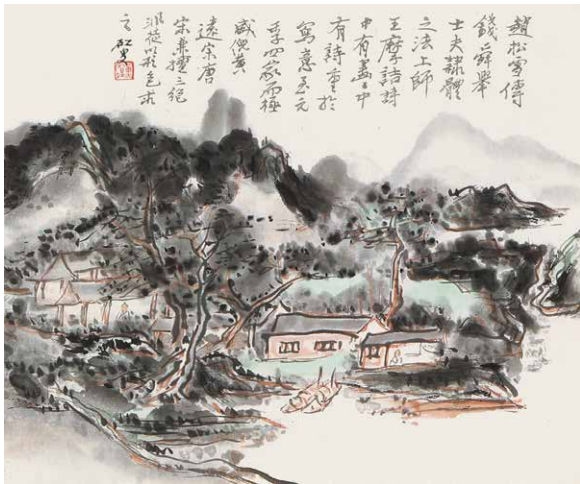 趙松雪傳
錢舜舉
士夫隸體
之法上師
王摩詰詩
中有畫畫中
有詩重於
寫意至元
季四家而極
盛倪黃
遠宗唐
宋兼擅三絕
非徒以形色求
之 虹叟